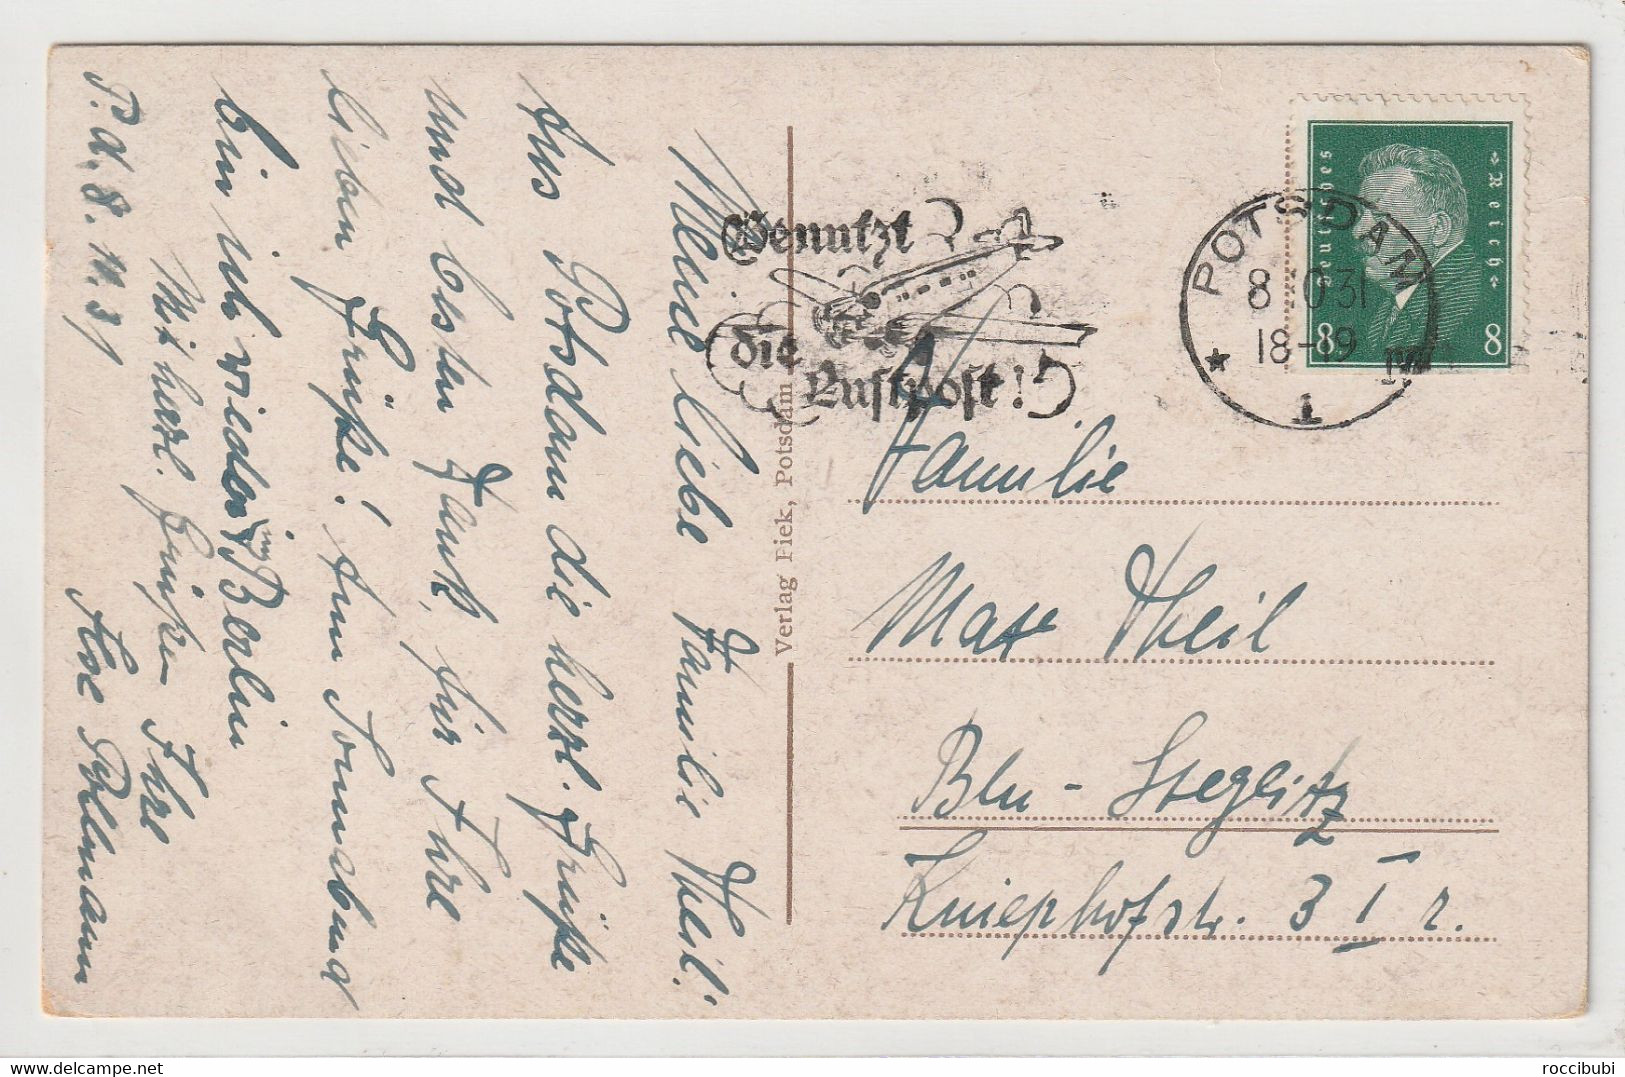 Meine liebe Familie Theil!
Aus Potsdam die herzl. Grüße
und besten Dank für Ihre
lieben Grüße! Am Sonnabend
bin ich wieder in Berlin
Mit herzl. Grüßen Ihre
Ilse Pollmann
P. d. 8. 10. 31
Verlag Piek, Potsdam
Benutzt
die
Luftpost!
POTSDAM
8.10.31
18-19
1
Deutsches Reich
8 8
Familie
Max Theil
Bln - Steglitz
Kniephofstr. 3 I r.
roccibubi